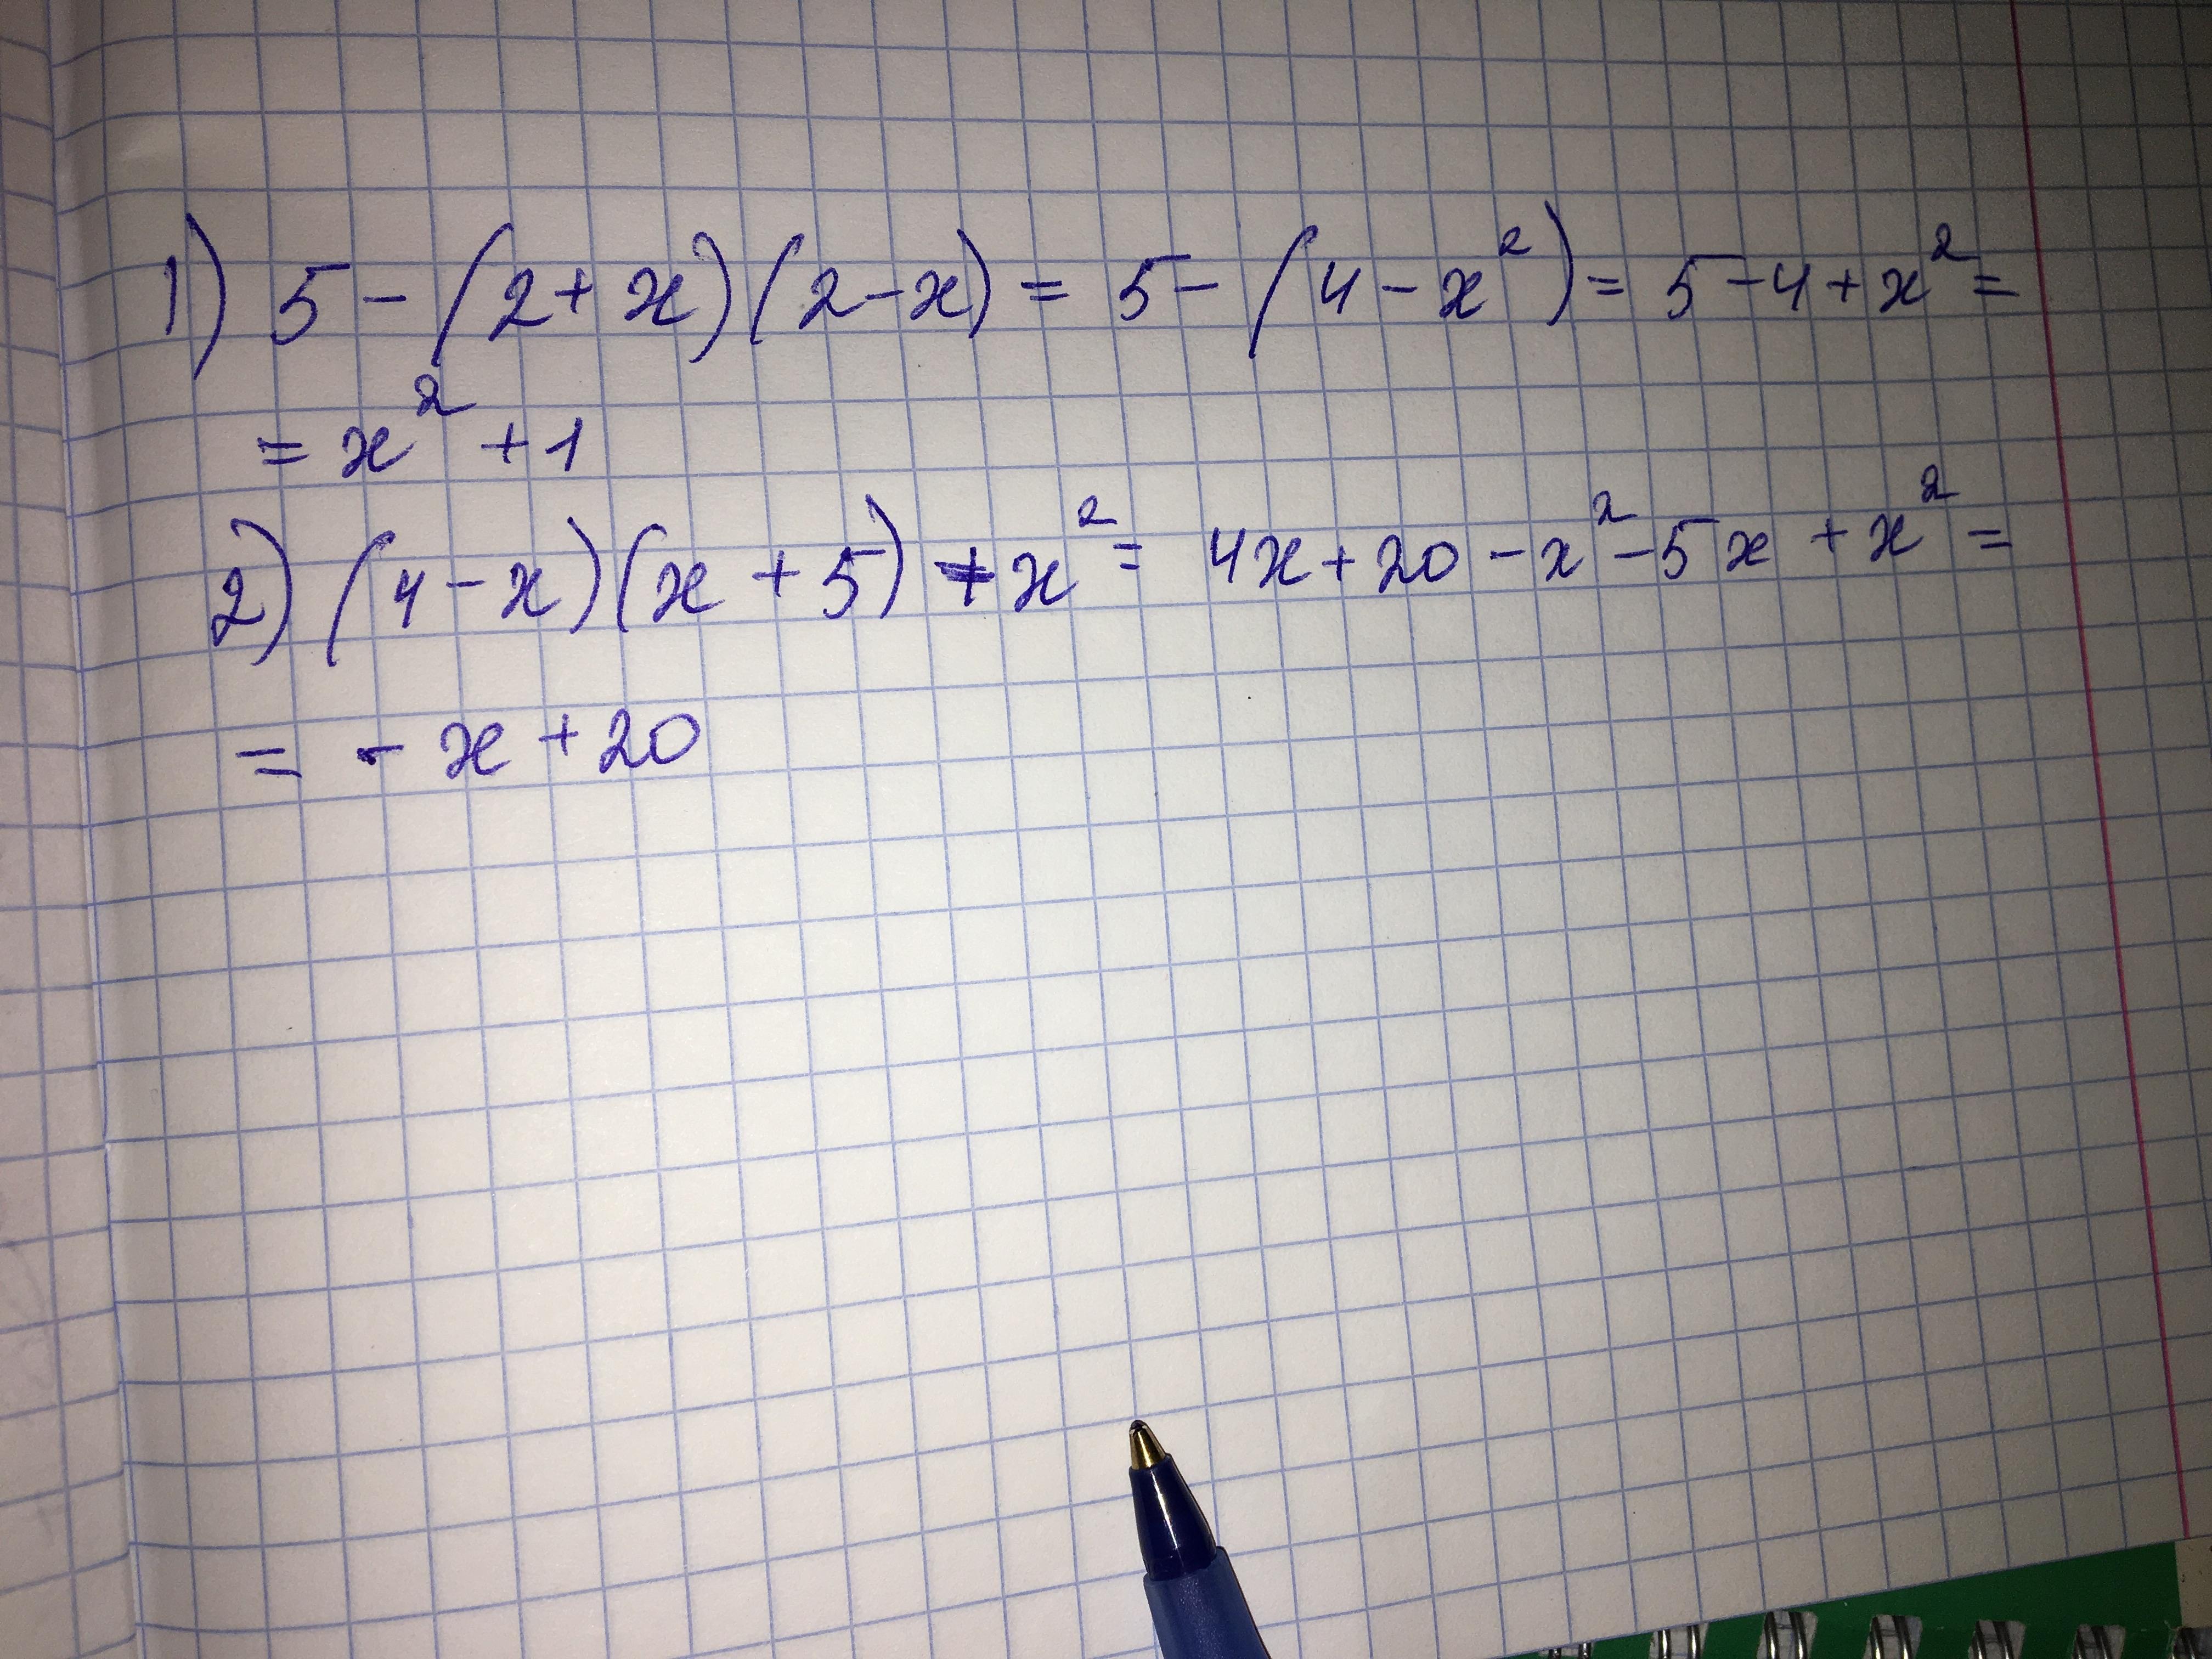 1) 5 - (2 + x)(2 - x) = 5 - (4 - x²) = 5 - 4 + x² =
= x² + 1
2) (4 - x)(x + 5) + x² = 4x + 20 - x² - 5x + x² =
= - x + 20